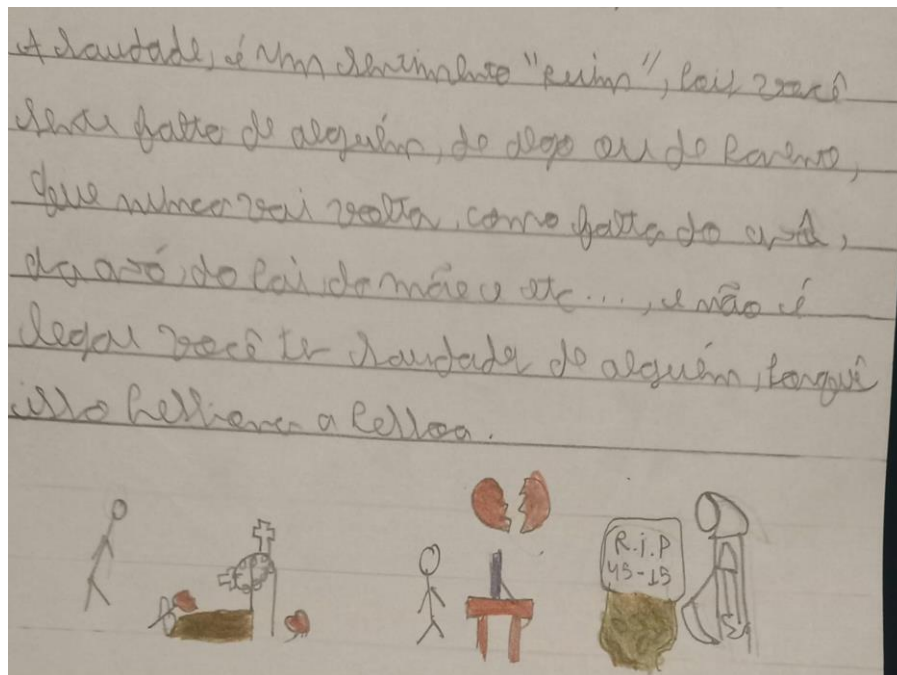 A saudade, é um sentimento "ruim", pois você
sente falta de alguém, de algo ou de parente,
que nunca vai volta, como falta do avô,
da avó, do pai, da mãe e etc..., e não é
legal você ter saudade de alguém, porquê
isso a pessoa.
R.i.P
45-15